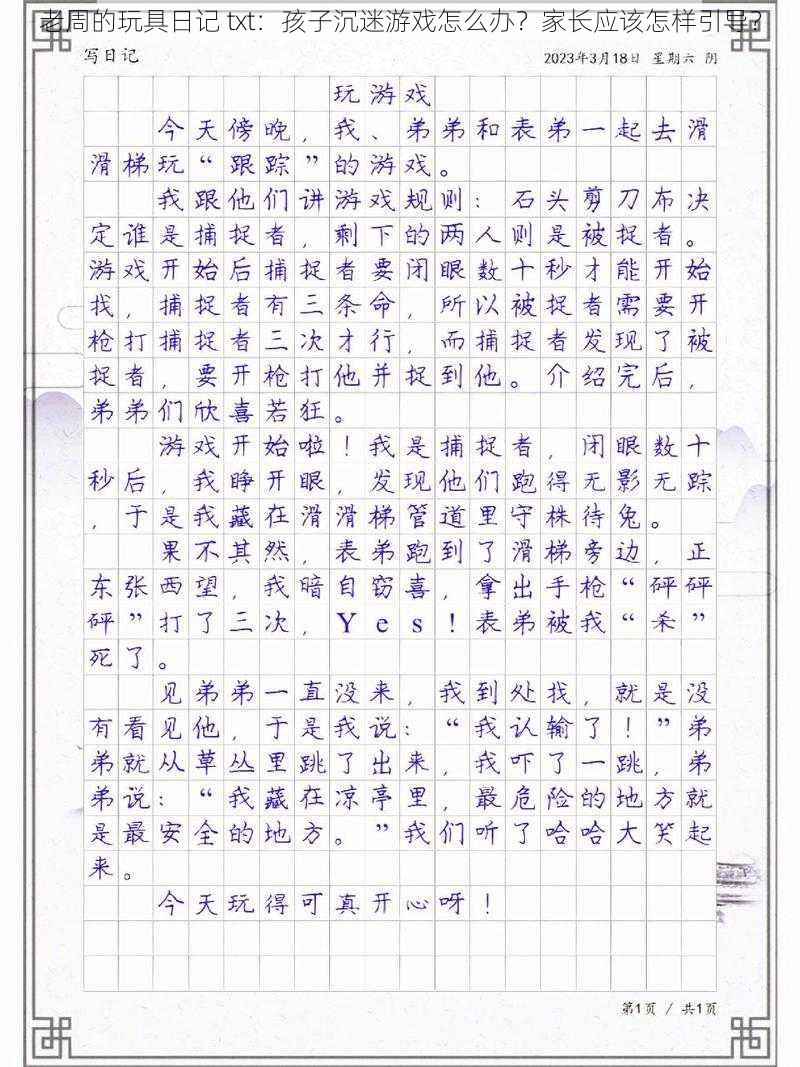 老周的玩具日记 txt：孩子沉迷游戏怎么办？家长应该怎样引导？
写日记
2023年3月18日 星期六 阴
玩游戏
今天傍晚，我、弟弟和表弟一起去滑
滑梯玩“跟踪”的游戏。
我跟他们讲游戏规则：石头剪刀布决
定谁是捕捉者，剩下的两人则是被捉者。
游戏开始后捕捉者要闭眼数十秒才能开始
找，捕捉者有三条命，所以被捉者需要开
枪打捕捉者三次才行，而捕捉者发现了被
捉者，要开枪打他并捉到他。介绍完后，
弟弟们欣喜若狂。
游戏开始啦！我是捕捉者，闭眼数十
秒后，我睁开眼，发现他们跑得无影无踪
，于是我藏在滑滑梯管道里守株待兔。
果不其然，表弟跑到了滑梯旁边，正
东张西望，我暗自窃喜，拿出手枪“砰砰
砰”打了三次，Yes！表弟被我“杀”
死了。
见弟弟一直没来，我到处找，就是没
有看见他，于是我说：“我认输了！”弟
弟就从草丛里跳了出来，我吓了一跳，弟
弟说：“我藏在凉亭里，最危险的地方就
是最安全的地方。”我们听了哈哈大笑起
来。
今天玩得可真开心呀！
第1页 / 共1页